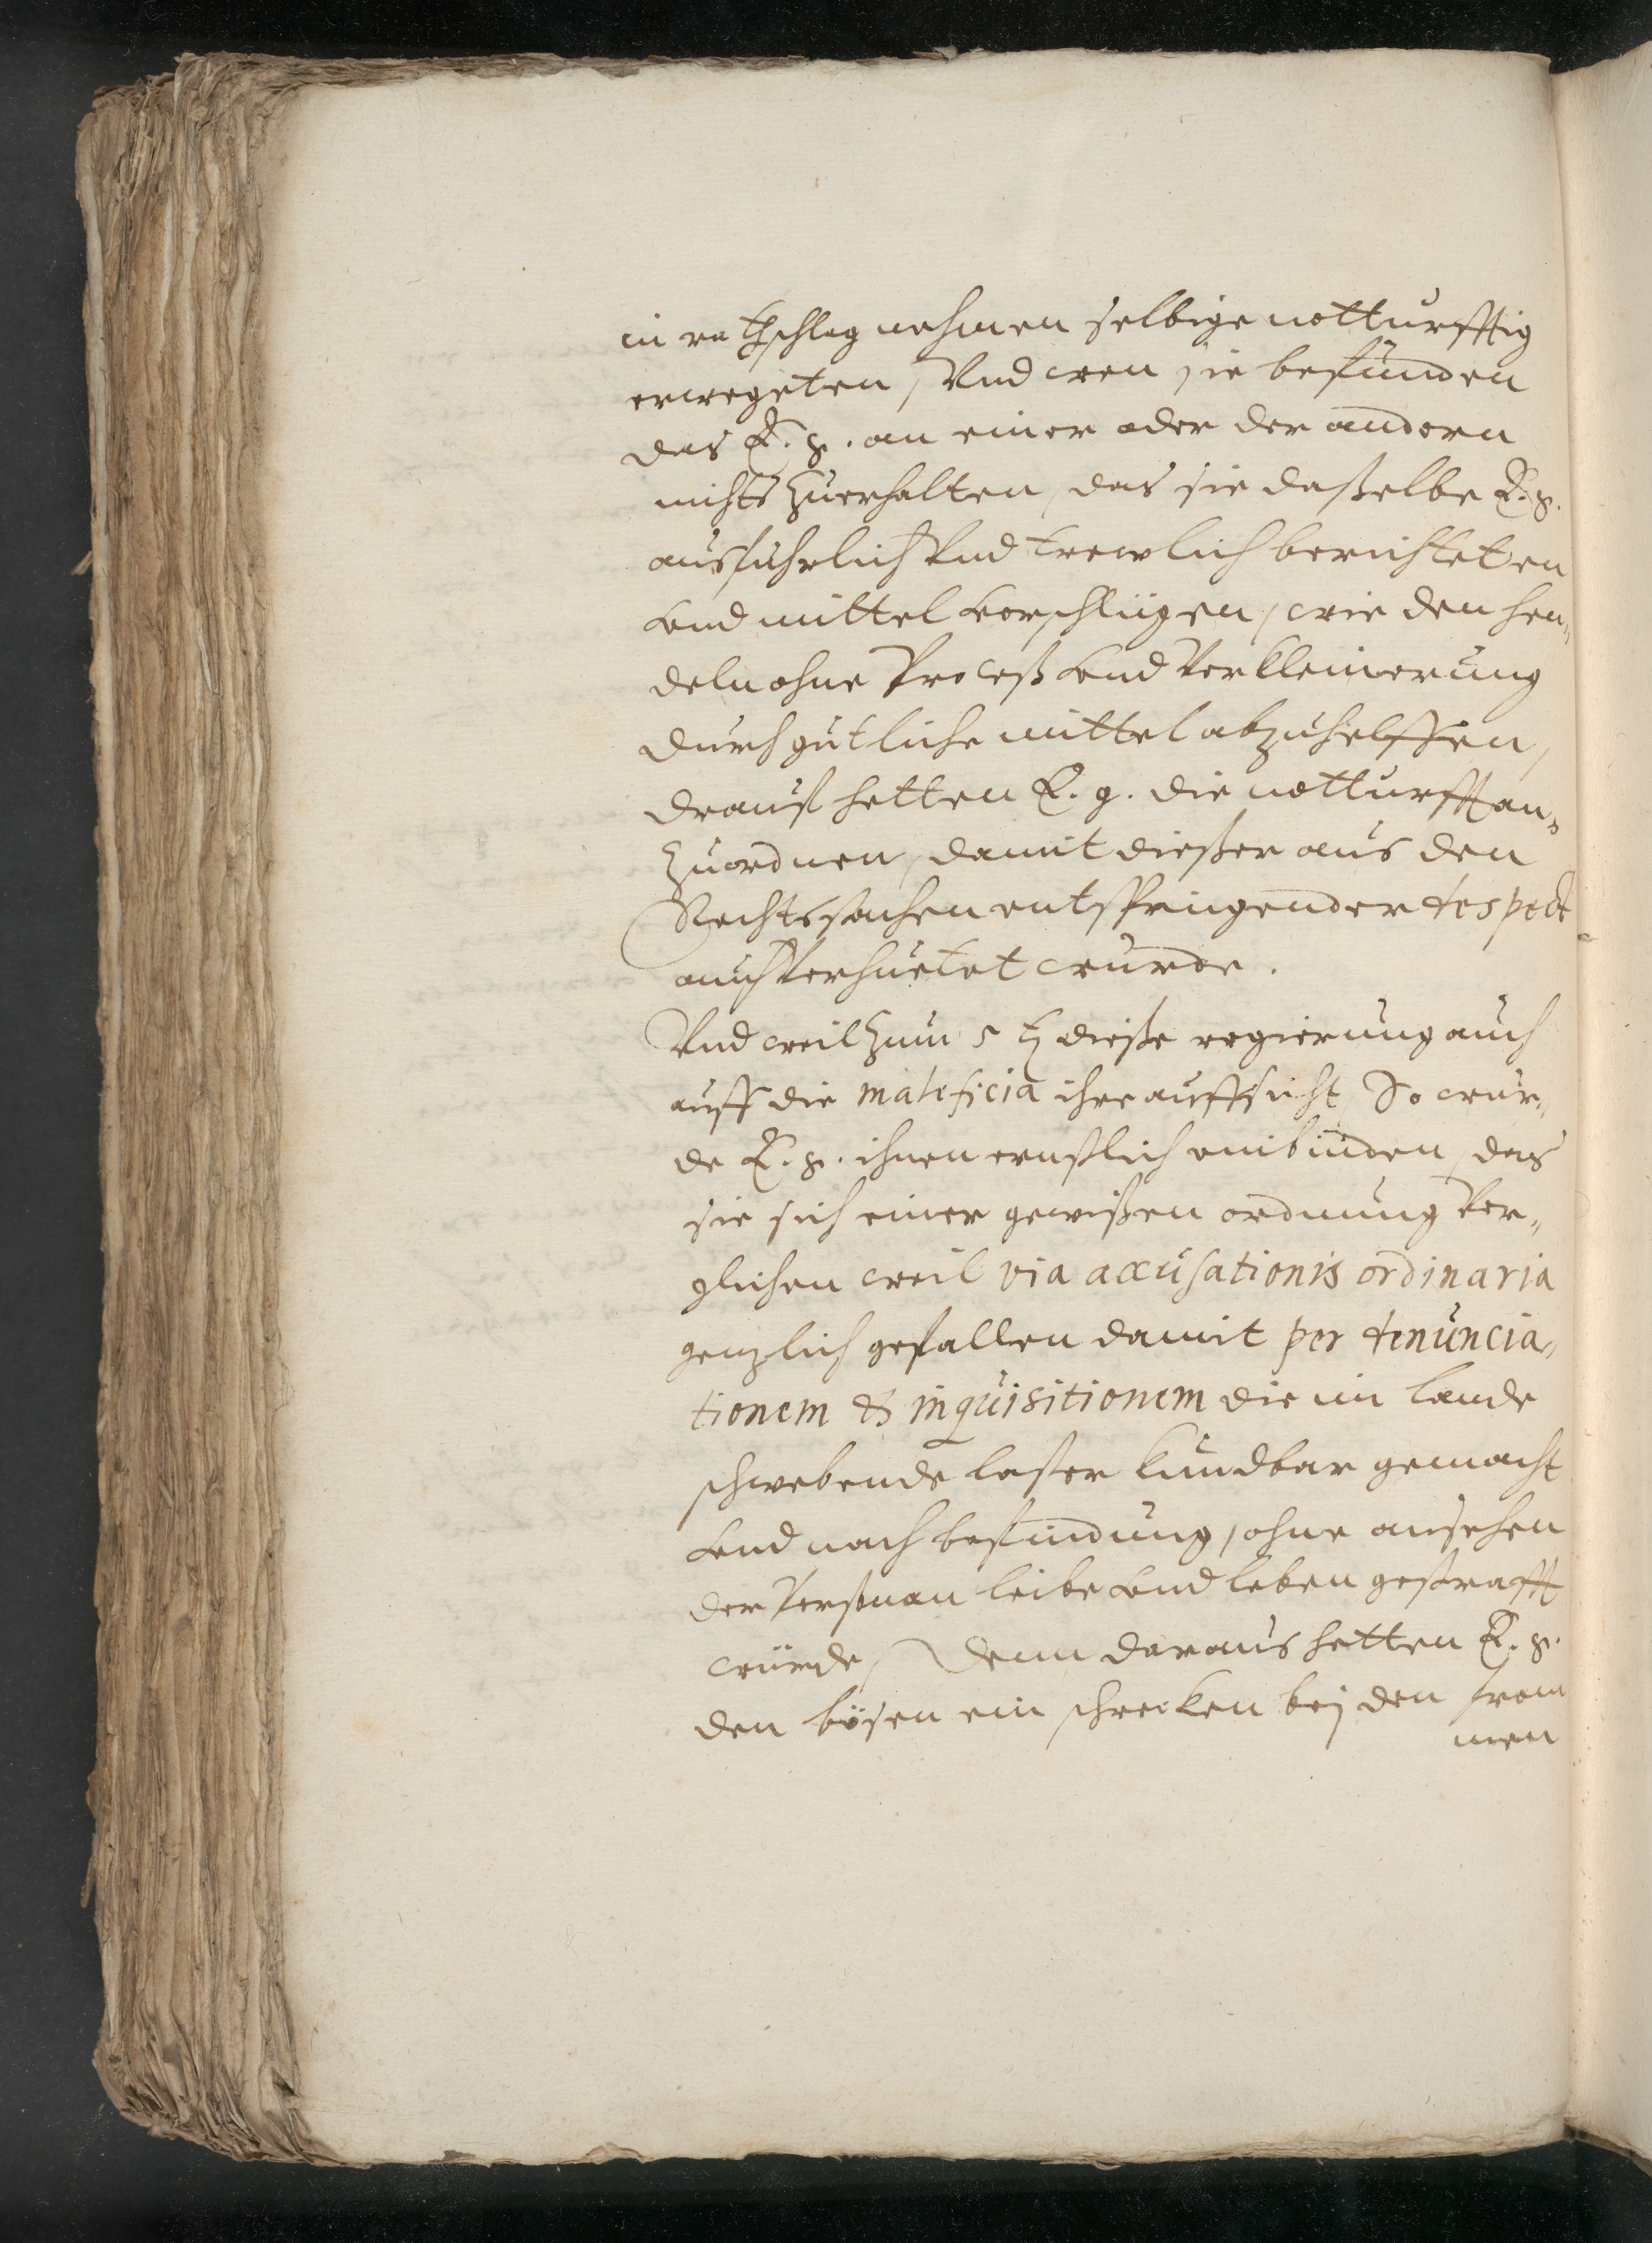 in rathschlag nehmen selbige notturfftig
erwegeten, Vnd wen sie befunden
das E. g. an einer oder der andern
nichts zuerhalten, das sie daßelbe E. g.
ausfuhrlich Vnd trewlich berichteten
vnd mittel vorschlügen, wie den hen„
deln ohne Proceß vnd Verkleinerung
durch gutliche mittel abzuhelffen,
drauf hetten E. g. die notturfft an„
zuordnen, damit dießer aus den
Rechtssachen entspringender despect
auch Verhuetet wurde.
Vnd weil zum 5 th dieße regierung auch
auff die maleficia ihre auffsicht, So wur„
de E. g. ihnen ernstlich einbinden, das
sie sich einer gewißen ordnung Ver„
glichen weil via accusationis ordinaria
genzlich gefallen damit per denuncia„
tionem & inquisitionem die im lande
schwebende laster kundbar gemacht
vnd nach befindung, ohne ansehen
der Perßon an leibe vnd leben gestrafft
würde, Denn daraus hetten E. g.
den bösen ein schrecken bej den from
men